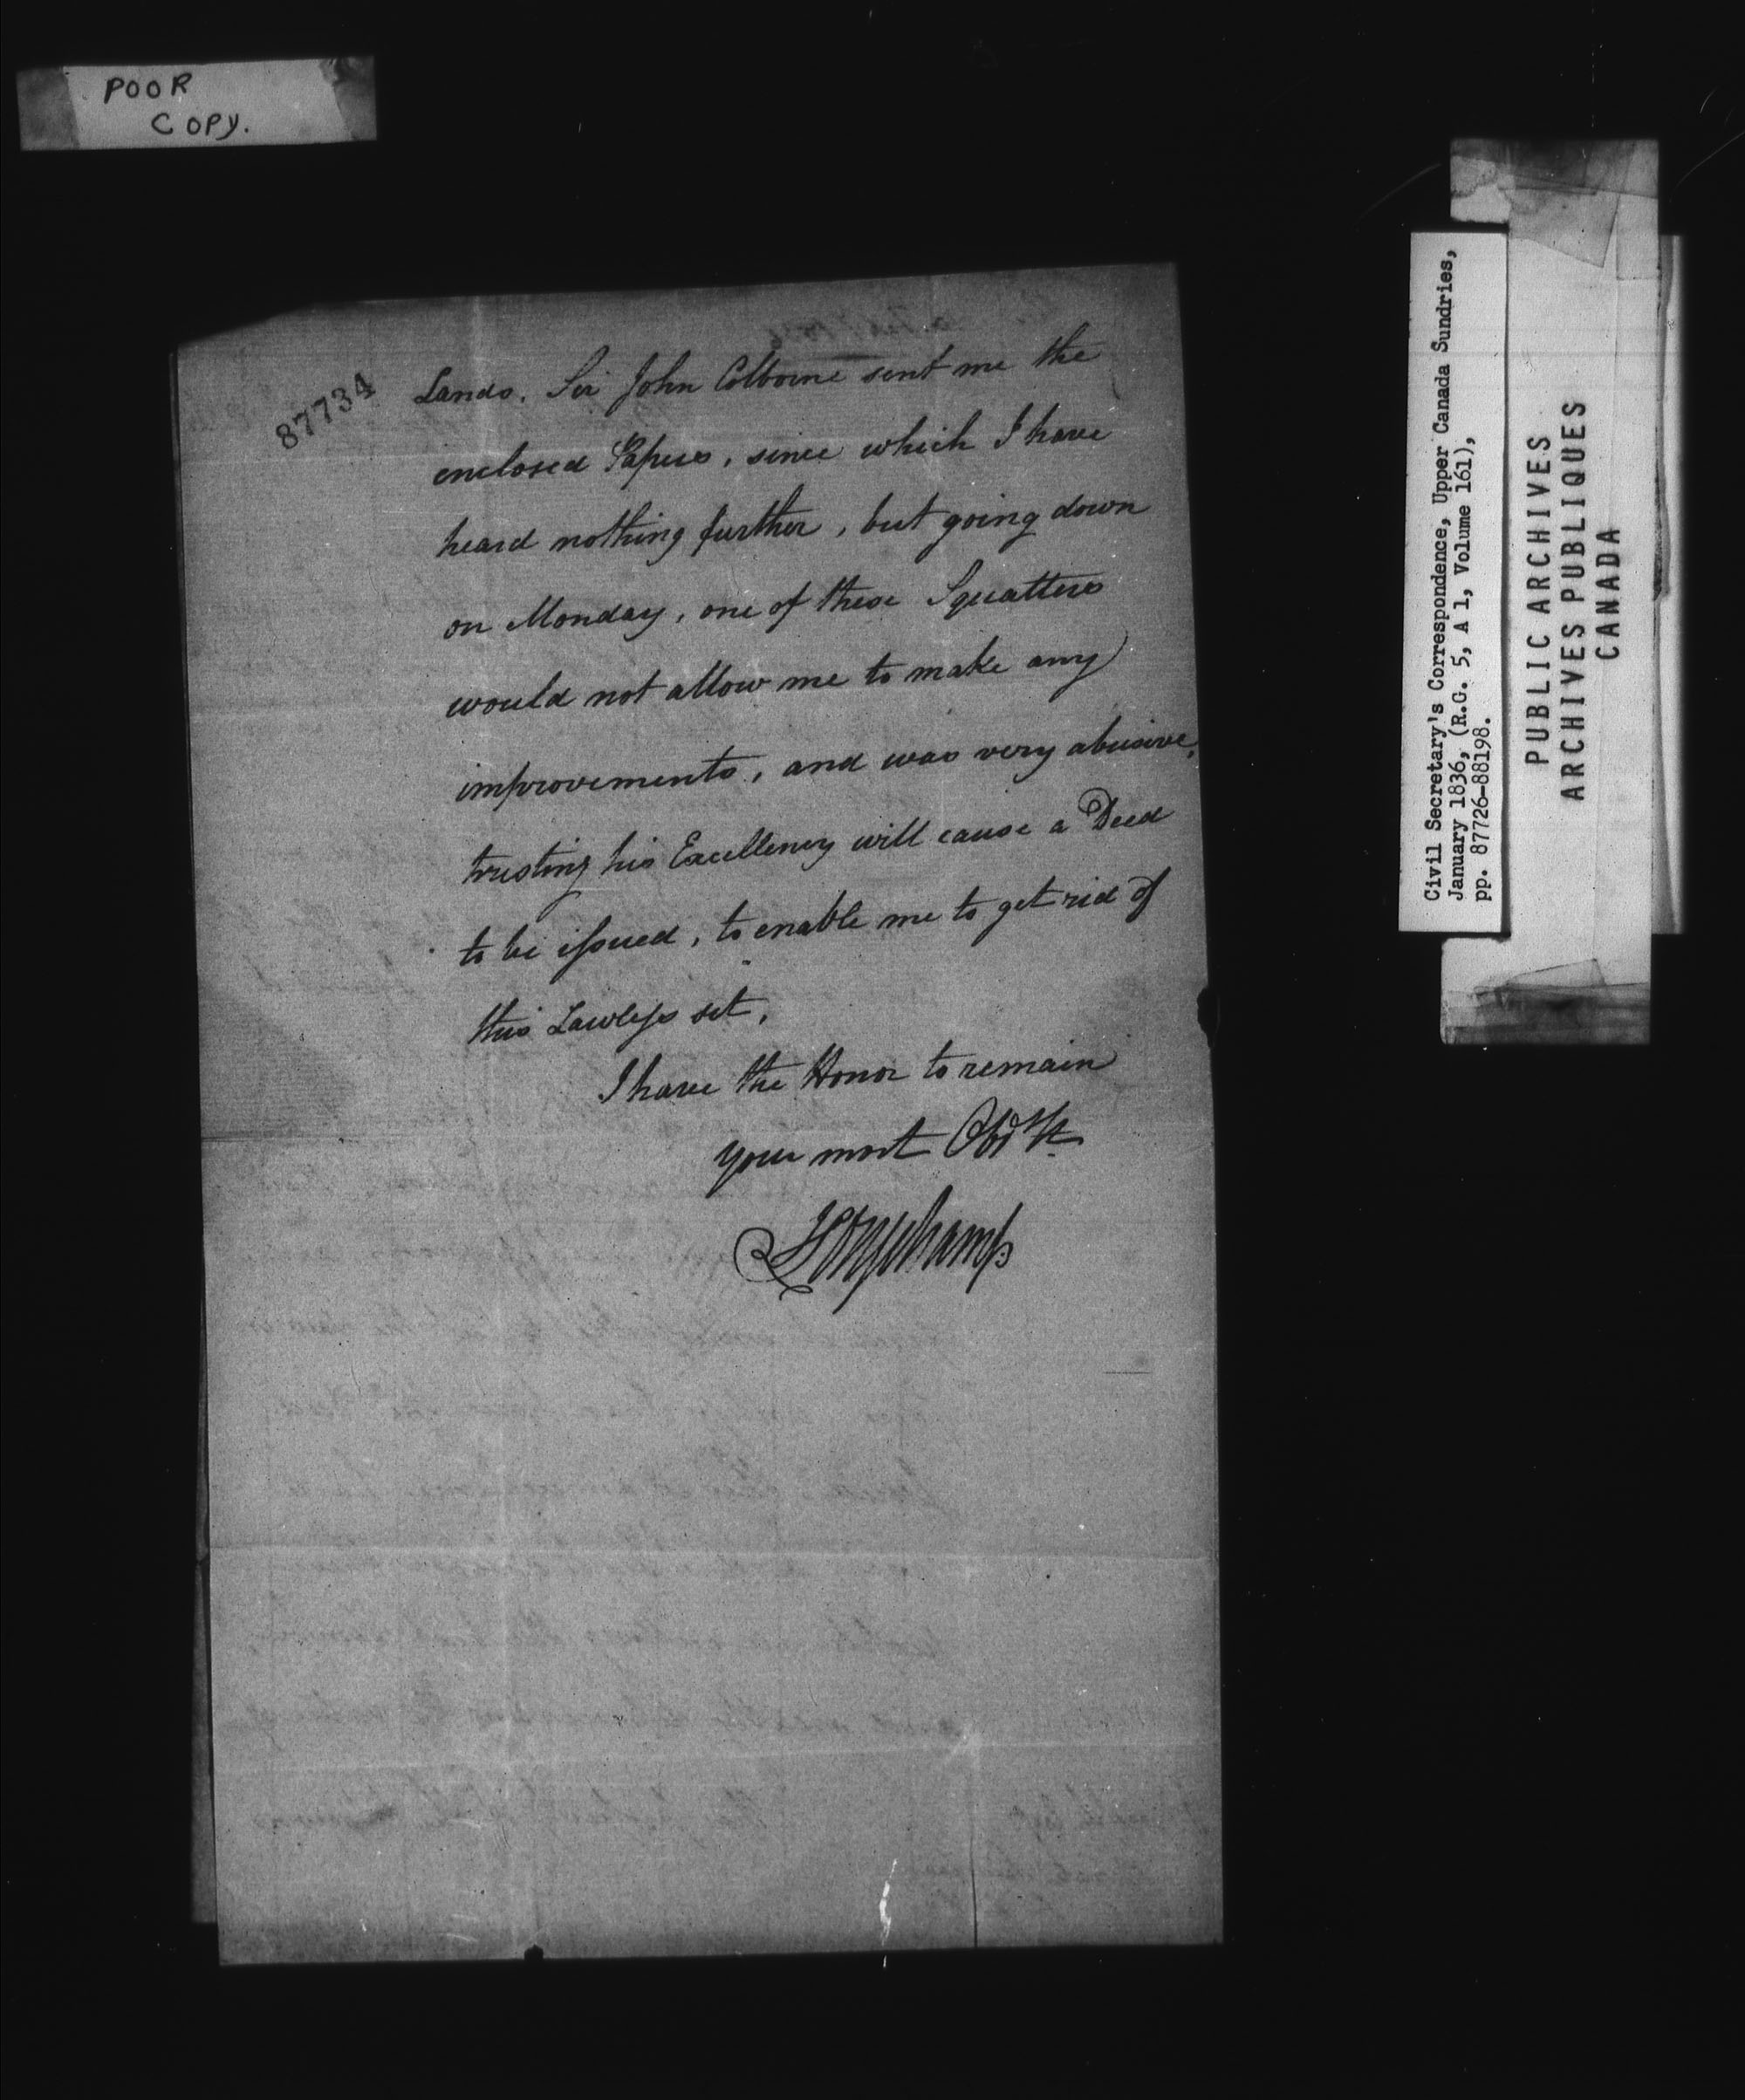 POOR
COPY.
87734
Lands. Sir John Colborne sent me the
enclosed Papers, since which I have
heard nothing further, but going down
on Monday, one of these Squatters
would not allow me to make any
improvements, and was very abusive,
trusting his Excellency will cause a Deed
to be issued, to enable me to get rid of
this Lawless set,
I have the Honor to remain
your most Obdt St
Longchamp
Civil Secretary's Correspondence, Upper Canada Sundries,
January 1836, (R.G. 5, A 1, Volume 161),
pp. 87726-88198.
PUBLIC ARCHIVES
ARCHIVES PUBLIQUES
CANADA